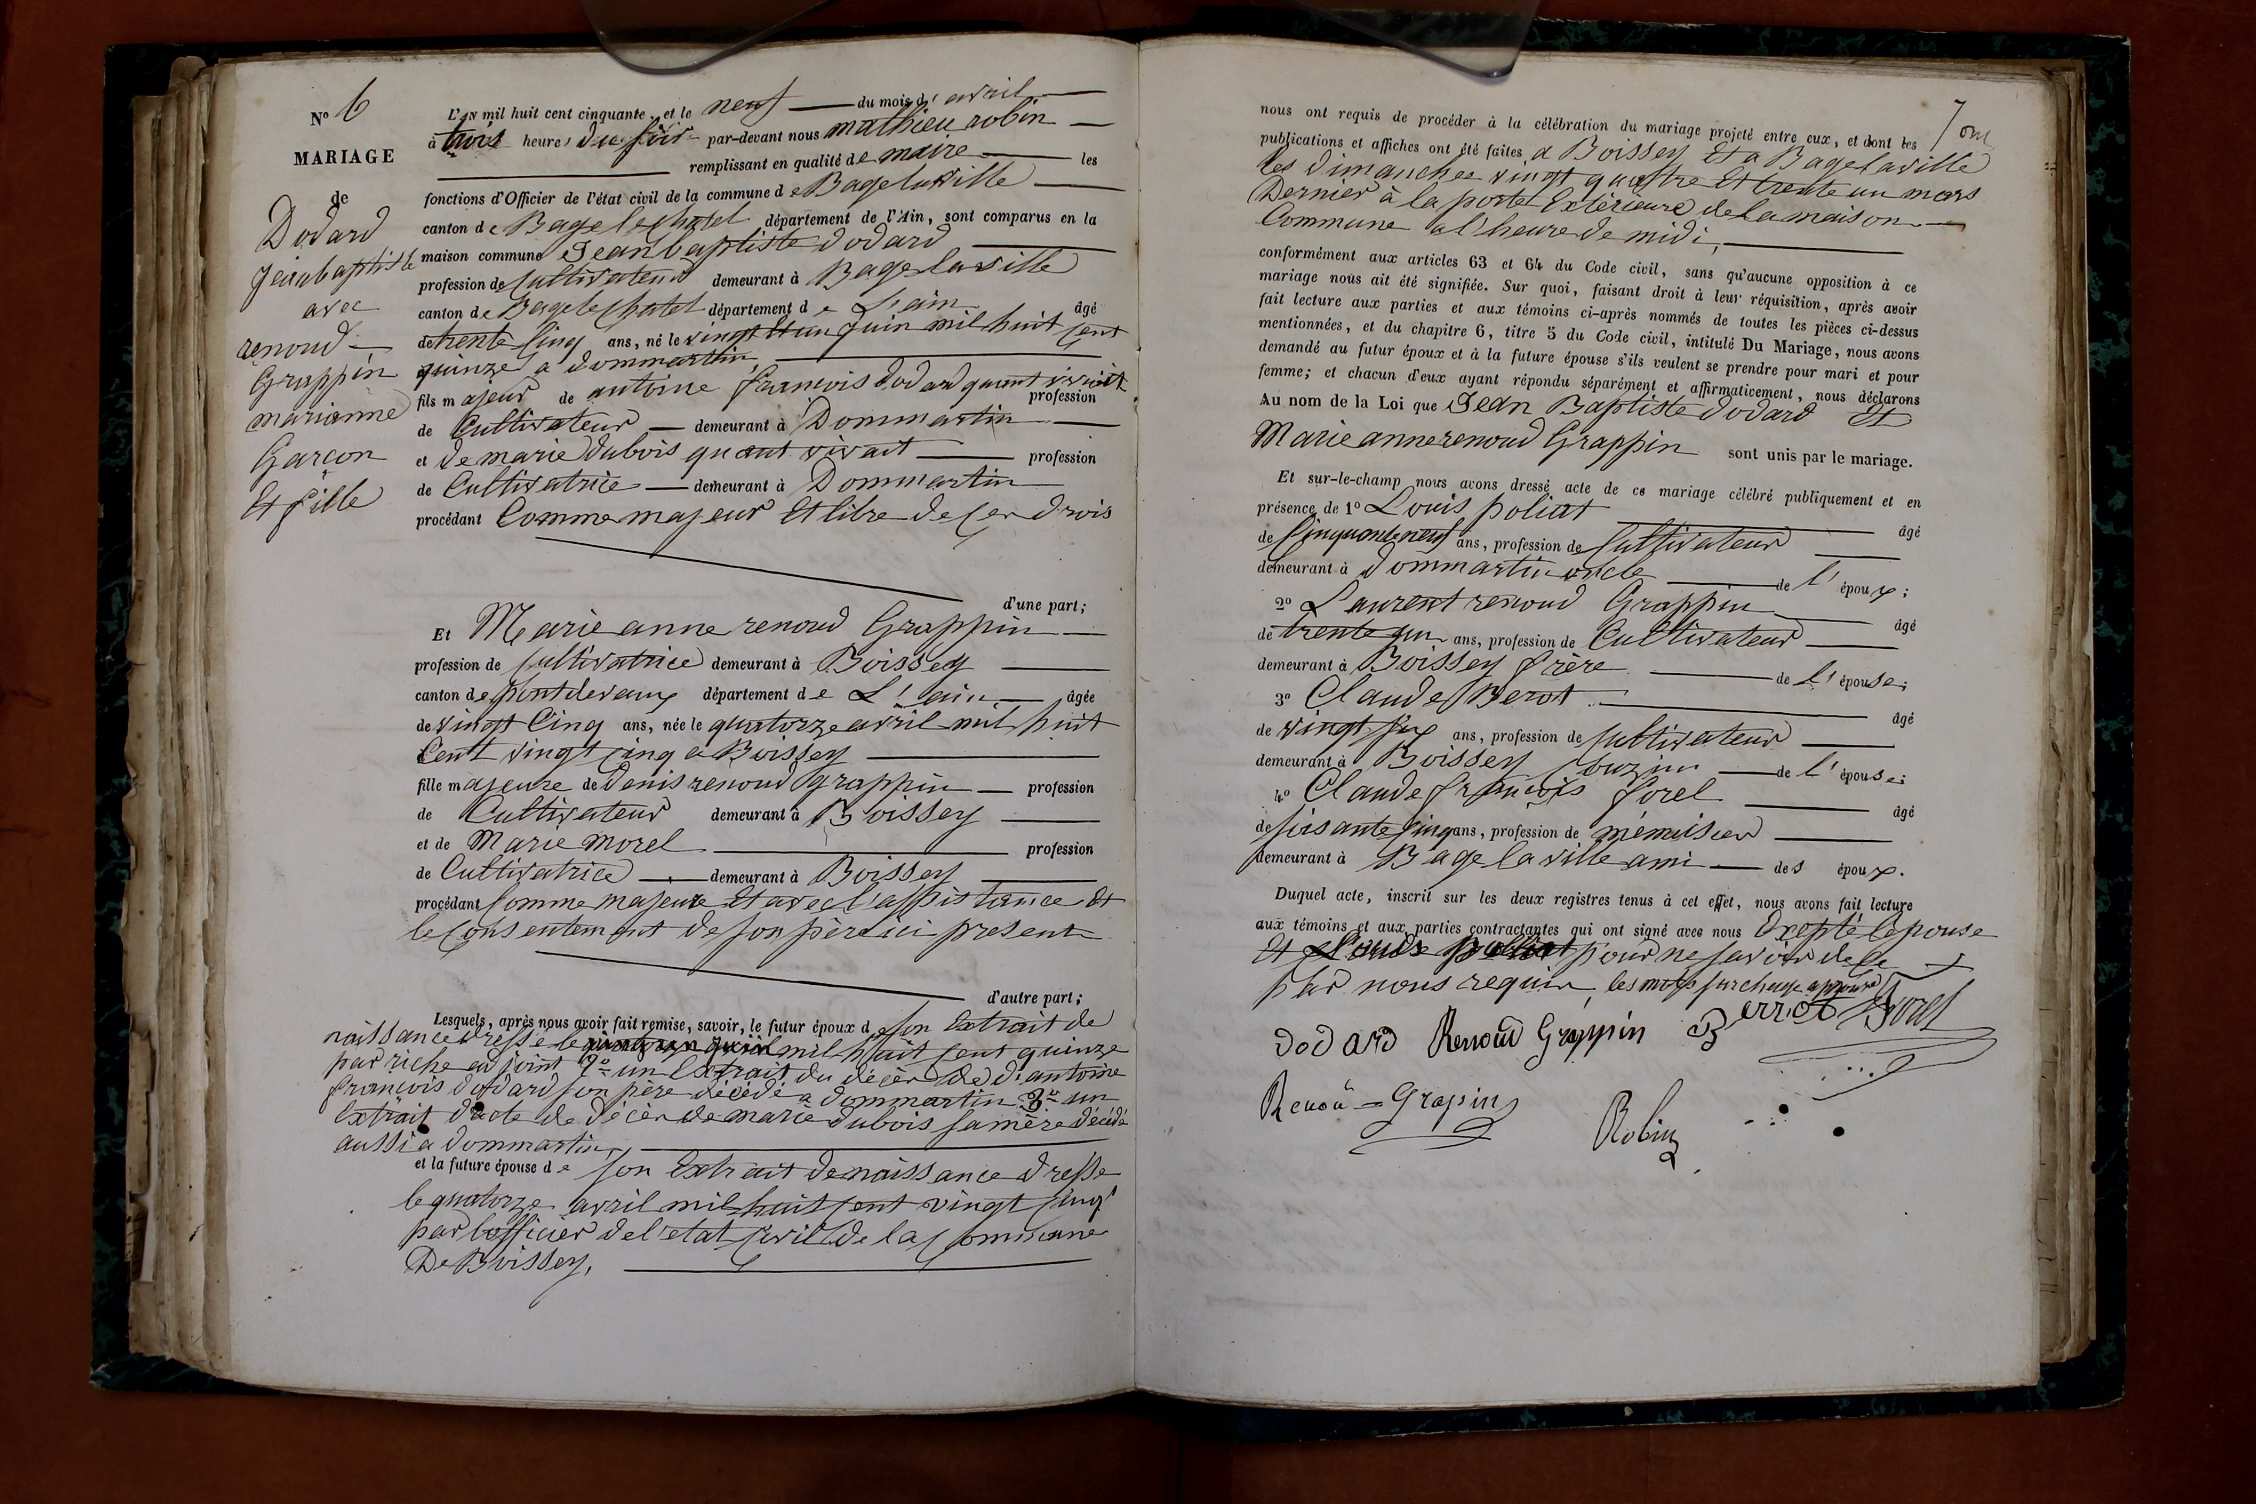 N° 6
MARIAGE
de
Dodard
Jean baptiste
avec
renoud
Grappin
marianne
Garcon
Et fille
L'an mil huit cent cinquante, et le neuf du mois d'avril
à trois heures du soir par-devant nous mathieu robin
remplissant en qualité de maire les
fonctions d'Officier de l'état civil de la commune de Bagelaville
canton de Bage le chatel département de l'Ain, sont comparus en la
maison commune Jean baptiste dodard
profession de Cultivateur demeurant à Bagelaville
canton de Bage le chatel département de L'ain âgé
de trente Cinq ans, né le vingt et un Juin mil huit Cent
quinze a dommartin
fils majeur de antoine francois dodard quant vivait profession
de Cultivateur demeurant à Dommartin
et de marie dubois quant vivait profession
de Cultivatrice demeurant à Dommartin
procédant Comme majeur Et libre de ses drois
d'une part;
Et Marie anne renoud Grappin
profession de Cultivatrice demeurant à Boissey
canton de pontdevaux département de L'ain âgée
de vingt Cinq ans, née le quatorze avril mil huit
Cent vingt Cinq a Boissey
fille majeure de Denis renoud Grappin profession
de Cultivateur demeurant à Boissey
et de Marie morel profession
de Cultivatrice demeurant à Boissey
procédant Comme majeure Et avec l'assistance Et
le Consentement de son père ici present
d'autre part;
Lesquels, après nous avoir fait remise, savoir, le futur époux de son Extrait de
naissance dressé le vingt un juin mil huit Cent quinze
par riche adjoint 2° un Extrait du décèr de d'antoine
françois dodard son père décédé a dommartin 3° un
Extrait d'acte de décèr de marie dubois sa mère décédé
aussi a dommartin,
et la future épouse de son Extrait de naissance dresse
le quatorze avril mil huit Cent vingt Cinq
par l'officier de l'etat Civil de la Commune
De Boissey,
7
nous ont requis de procéder à la célébration du mariage projeté entre eux, et dont les
publications et affiches ont été faites a Boissey Et a Bagelaville
les dimanches vingt quattre Et trente un mars
Dernier à la porte Extèrieure de la maison
Commune a l'heure de midi,
conformément aux articles 63 et 64 du Code civil, sans qu'aucune opposition à ce
mariage nous ait été signifiée. Sur quoi, faisant droit à leur réquisition, après avoir
fait lecture aux parties et aux témoins ci-après nommés de toutes les pièces ci-dessus
mentionnées, et du chapitre 6, titre 5 du Code civil, intitulé Du Mariage, nous avons
demandé au futur époux et à la future épouse s'ils veulent se prendre pour mari et pour
femme; et chacun d'eux ayant répondu séparément et affirmativement, nous déclarons
Au nom de la Loi que Jean Baptiste dodard Et
Marie anne renoud Grappin sont unis par le mariage.
Et sur-le-champ nous avons dressé acte de ce mariage célébré publiquement et en
présence de 1° Louis poliat âgé
de Cinquante neuf ans, profession de Cultivateur
demeurant à dommartin oncle de l'époux;
2° Laurent renoud Grappin âgé
de trente un ans, profession de Cultivateur
demeurant à Boissey frère de l'épouse;
3° Claude Berot âgé
de vingt six ans, profession de Cultivateur
demeurant à Boissey Couzin de l'épouse;
4° Claude françois forel âgé
de soisante Cinq ans, profession deménuisier
demeurant à Bage la ville ami des époux.
Duquel acte, inscrit sur les deux registres tenus à cet effet, nous avons fait lecture
aux témoins et aux parties contractantes qui ont signé avec nous Excepté lépouse
Et poliat pour ne savoir de ce
par nous requir, les mots surchargé approuvé
Dodard Renoud Grappin Berrot Forel
Renou Grapin Robin